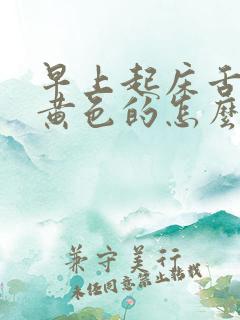 早上起床舌
黄色的怎麽
兼守美行
未经同意禁止转载